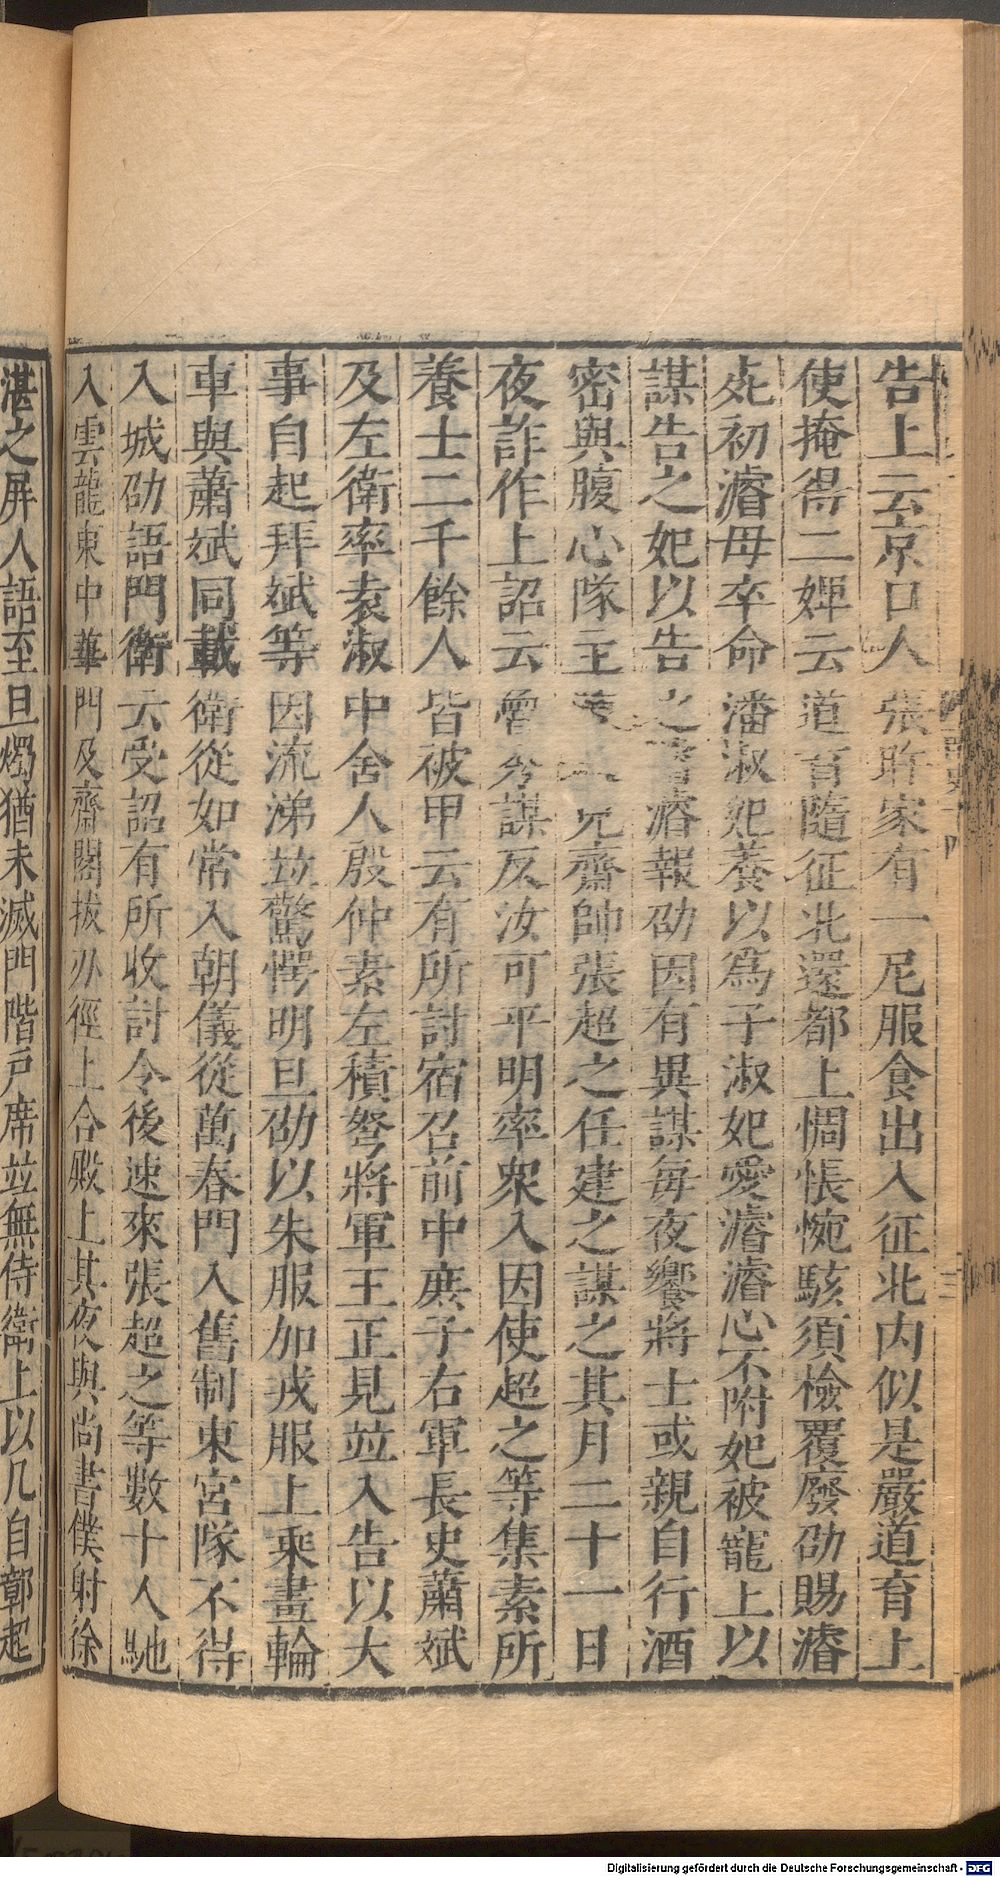 告上云京口人張旿家有一尼服食出入征北内似是嚴道育上
使掩得二婢云道育隨征北還都上惆悵惋駭須檢覆廢劭賜濬
死初濬母卒命潘淑妃養以爲子淑妃愛濬濬心不附妃被寵上以
謀告之妃以告之濬濬報劭因有異謀每夜饗將士或親自行酒
密與腹心隊主兄齋帥張超之任建之謀之其月二十一日
夜詐作上詔云魯秀謀反汝可平明率衆入因使超之等集素所
養士二千餘人皆被甲云有所討宿召前中庶子右軍長史蕭斌
及左衛率袁淑中舍人殷仲素左積弩將軍王正見並入告以大
事自起拜斌等因流涕並驚愕明旦劭以朱服加戎服上乘畫輪
車與蕭斌同載衛從如常入朝儀從萬春門入舊制東宮隊不得
入城劭語門衛云受詔有所收討令後速來張超之等數十人馳
入雲龍東中華門及齋閤拔刃徑上合殿上其夜與尚書僕射徐
湛之屏人語至旦燭猶未滅門階戶席並無侍衛上以几自鄣超
三
Digitalisierung gefördert durch die Deutsche Forschungsgemeinschaft - DFG